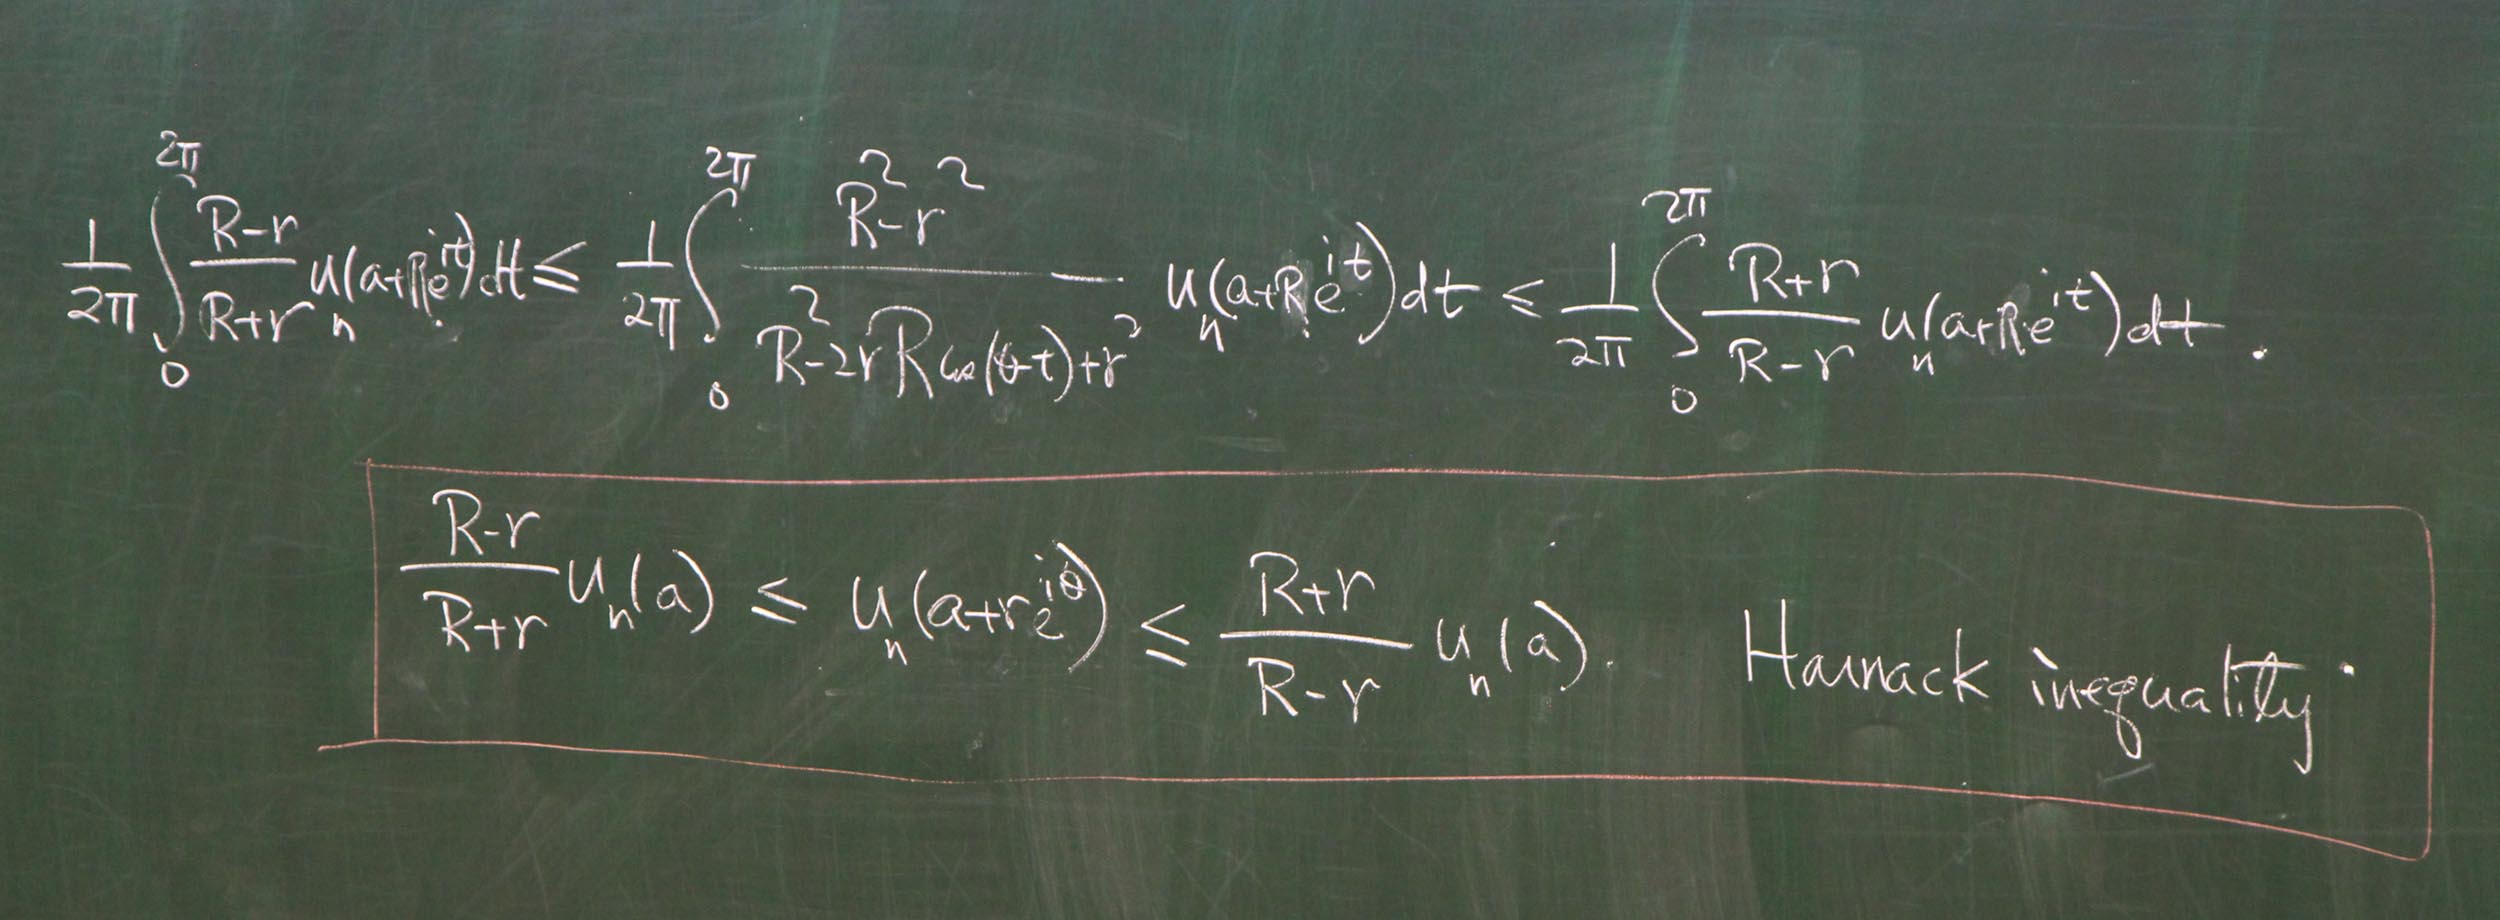 $\frac{1}{2\pi}\int_0^{2\pi}\frac{R-r}{R+r}u_n(a+Re^{it})dt \le \frac{1}{2\pi}\int_0^{2\pi}\frac{R^2-r^2}{R^2-2rR\cos(\theta-t)+r^2}u_n(a+Re^{it})dt \le \frac{1}{2\pi}\int_0^{2\pi}\frac{R+r}{R-r}u_n(a+Re^{it})dt.$
$\frac{R-r}{R+r}u_n(a) \le u_n(a+re^{i\theta}) \le \frac{R+r}{R-r}u_n(a).$ Harnack inequality.